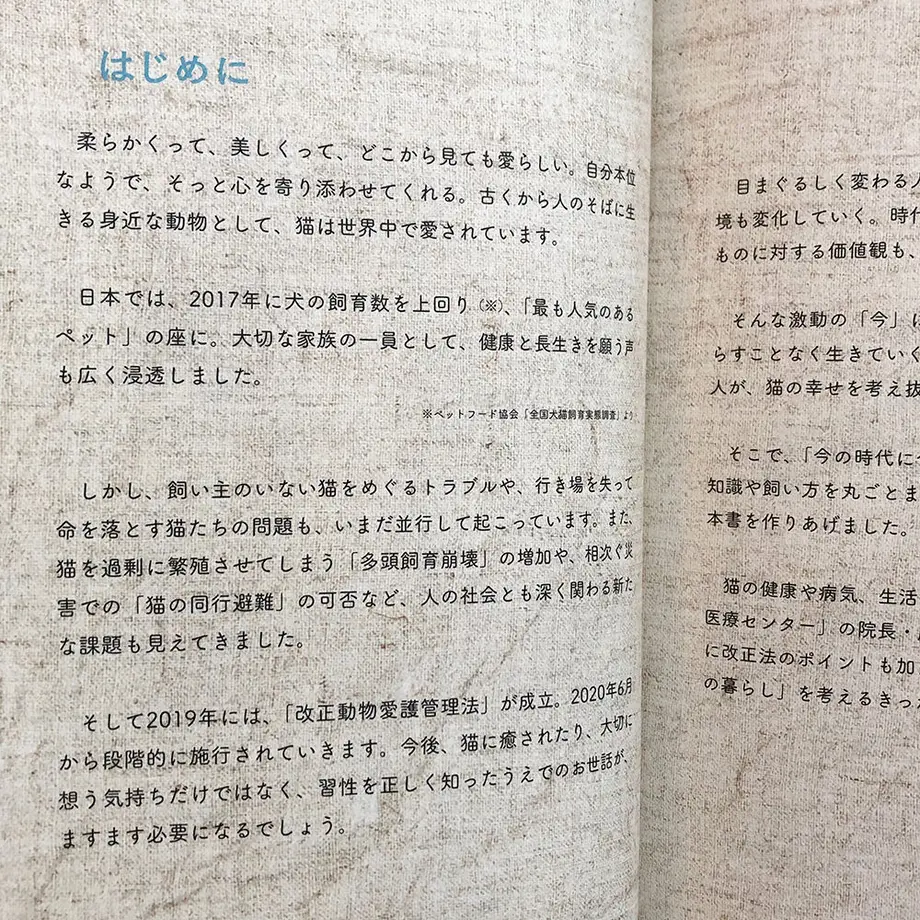 はじめに
柔らかくって、美しくって、どこから見ても愛らしい。自分本位
なようで、そっと心を寄り添わせてくれる。古くから人のそばに生
きる身近な動物として、猫は世界中で愛されています。
日本では、2017年に犬の飼育数を上回り(※)、「最も人気のある
ペット」の座に。大切な家族の一員として、健康と長生きを願う声
も広く浸透しました。
※ペットフード協会「全国犬猫飼育実態調査」より
しかし、飼い主のいない猫をめぐるトラブルや、行き場を失って
命を落とす猫たちの問題も、いまだ並行して起こっています。また、
猫を過剰に繁殖させてしまう「多頭飼育崩壊」の増加や、相次ぐ災
害での「猫の同行避難」の可否など、人の社会とも深く関わる新た
な課題も見えてきました。
そして2019年には、「改正動物愛護管理法」が成立。2020年6月
から段階的に施行されていきます。今後、猫に癒されたり、大切に
想う気持ちだけではなく、習性を正しく知ったうえでのお世話が、
ますます必要になるでしょう。
目まぐるしく変わる人
境も変化していく。時代
ものに対する価値観も、
そんな激動の「今」に
らすことなく生きていく
人が、猫の幸せを考え抜
そこで、「今の時代に
知識や飼い方を丸ごとま
本書を作りあげました。
猫の健康や病気、生活
医療センター」の院長・
に改正法のポイントも加
の暮らし」を考えるきっか